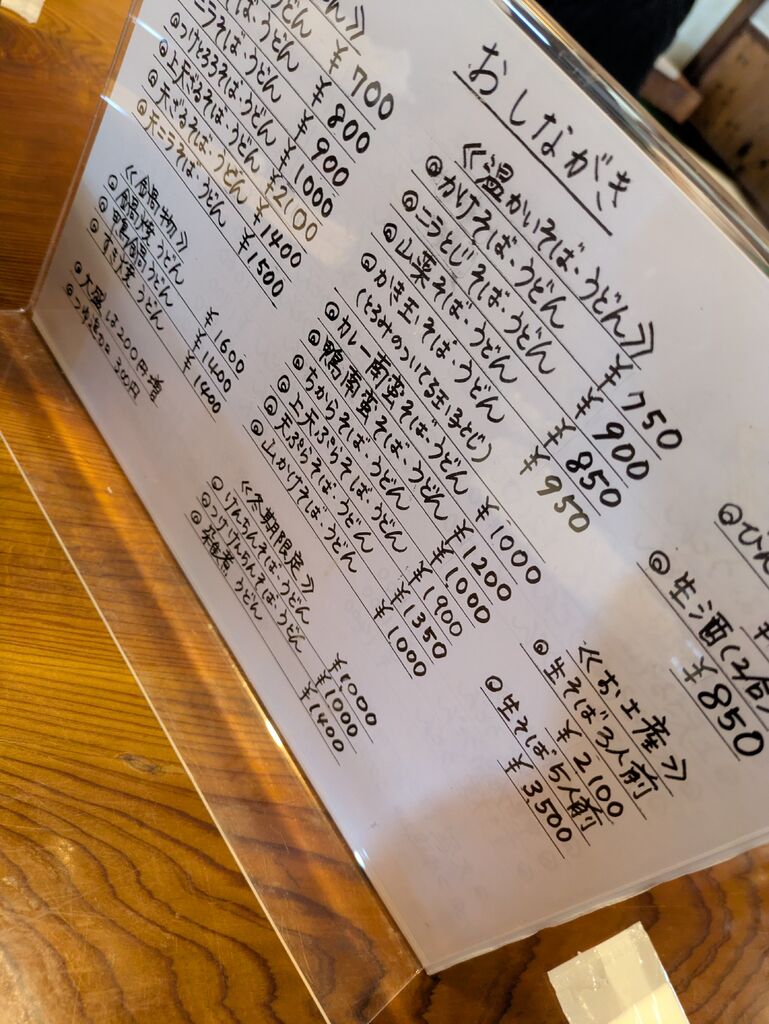 おしながき
≪温かいそば・うどん≫
◎かけそば・うどん ¥750
◎ニラとじそば・うどん ¥900
◎山菜そば・うどん ¥850
◎かき玉そば・うどん ¥950
(とろみのついてる玉子とじ)
◎カレー南蛮そば・うどん ¥1000
◎鴨南蛮そば・うどん ¥1200
◎ちからそば・うどん ¥1000
◎上天ぷらそば・うどん ¥1900
◎天ぷらそば・うどん ¥1350
◎山かけそば・うどん ¥1000
≪冬期限定≫
◎けんちんそば・うどん ¥1000
◎つけけんちんそば・うどん ¥1000
うどん ¥1400
どん≫
うどん ¥700
そば・うどん ¥800
ニラそば・うどん ¥900
◎つけとろろそば・うどん ¥1000
◎上天ざるそば・うどん ¥2100
◎天ざるそば・うどん ¥1400
◎天ニラそば・うどん ¥1500
≪鍋物≫
◎鍋焼うどん ¥1600
◎鴨鍋うどん ¥1400
◎すき焼うどん ¥1400
◎大盛は200円増
300円
◎びん
◎生酒(2合)
¥850
≪お土産≫
◎生そば3人前
¥2100
◎生そば5人前
¥3,500